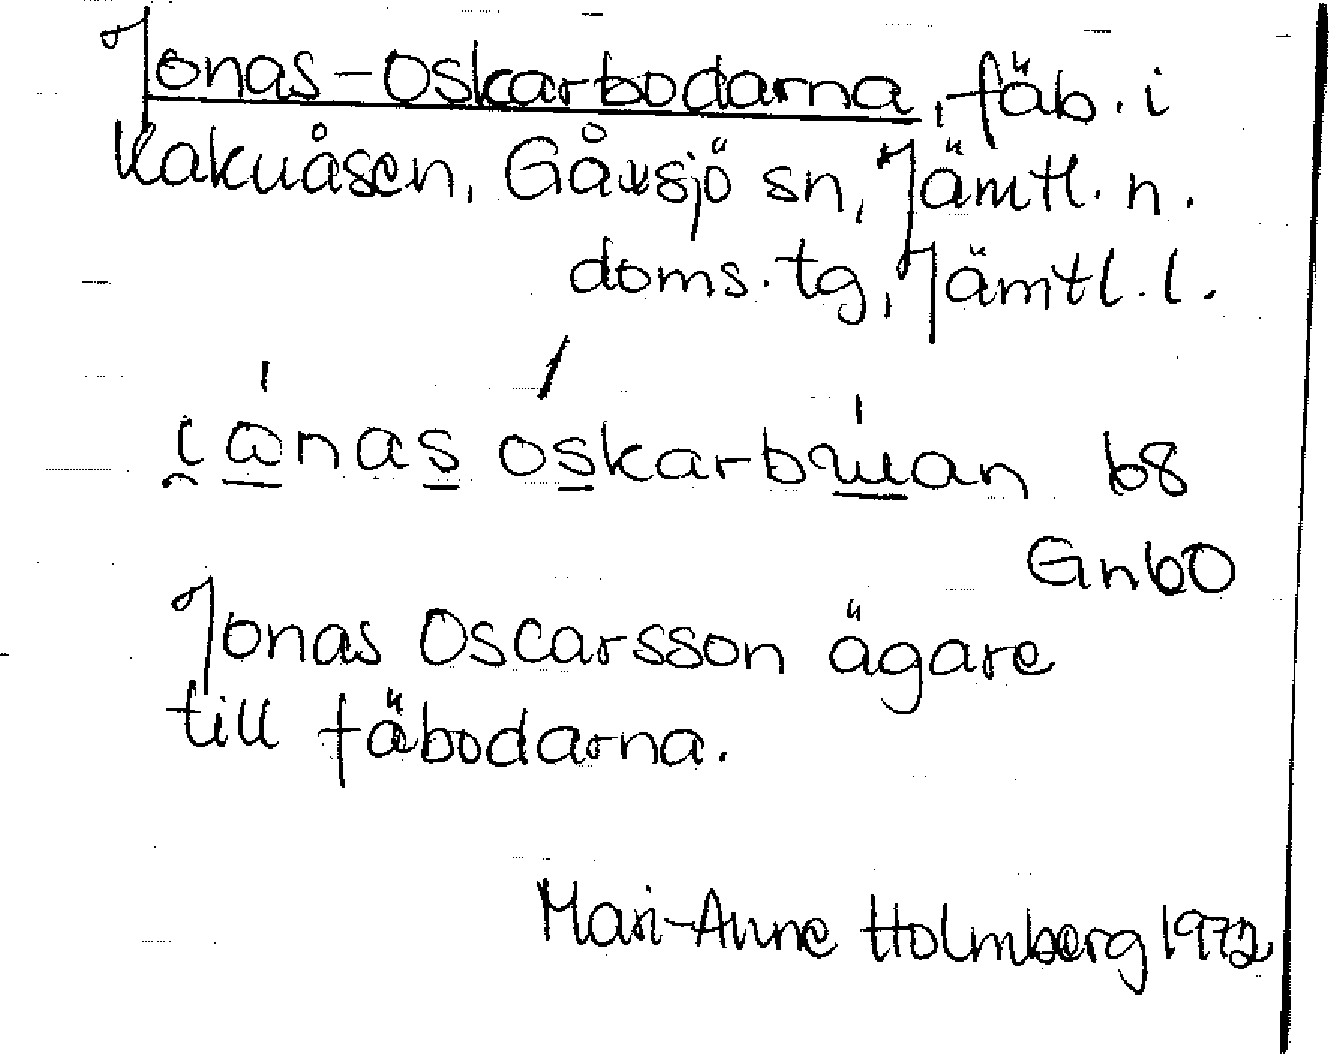 Jonas-Oskarbodarna, fäb. i
Kakuåsen, Gåxsjö sn, Jämtl. n.
doms. tg, Jämtl. l.
oskarb
b8
Gnb0
Jonas Oscarsson ägare
till fäbodarna.
Mari-Anne Holmberg 1972